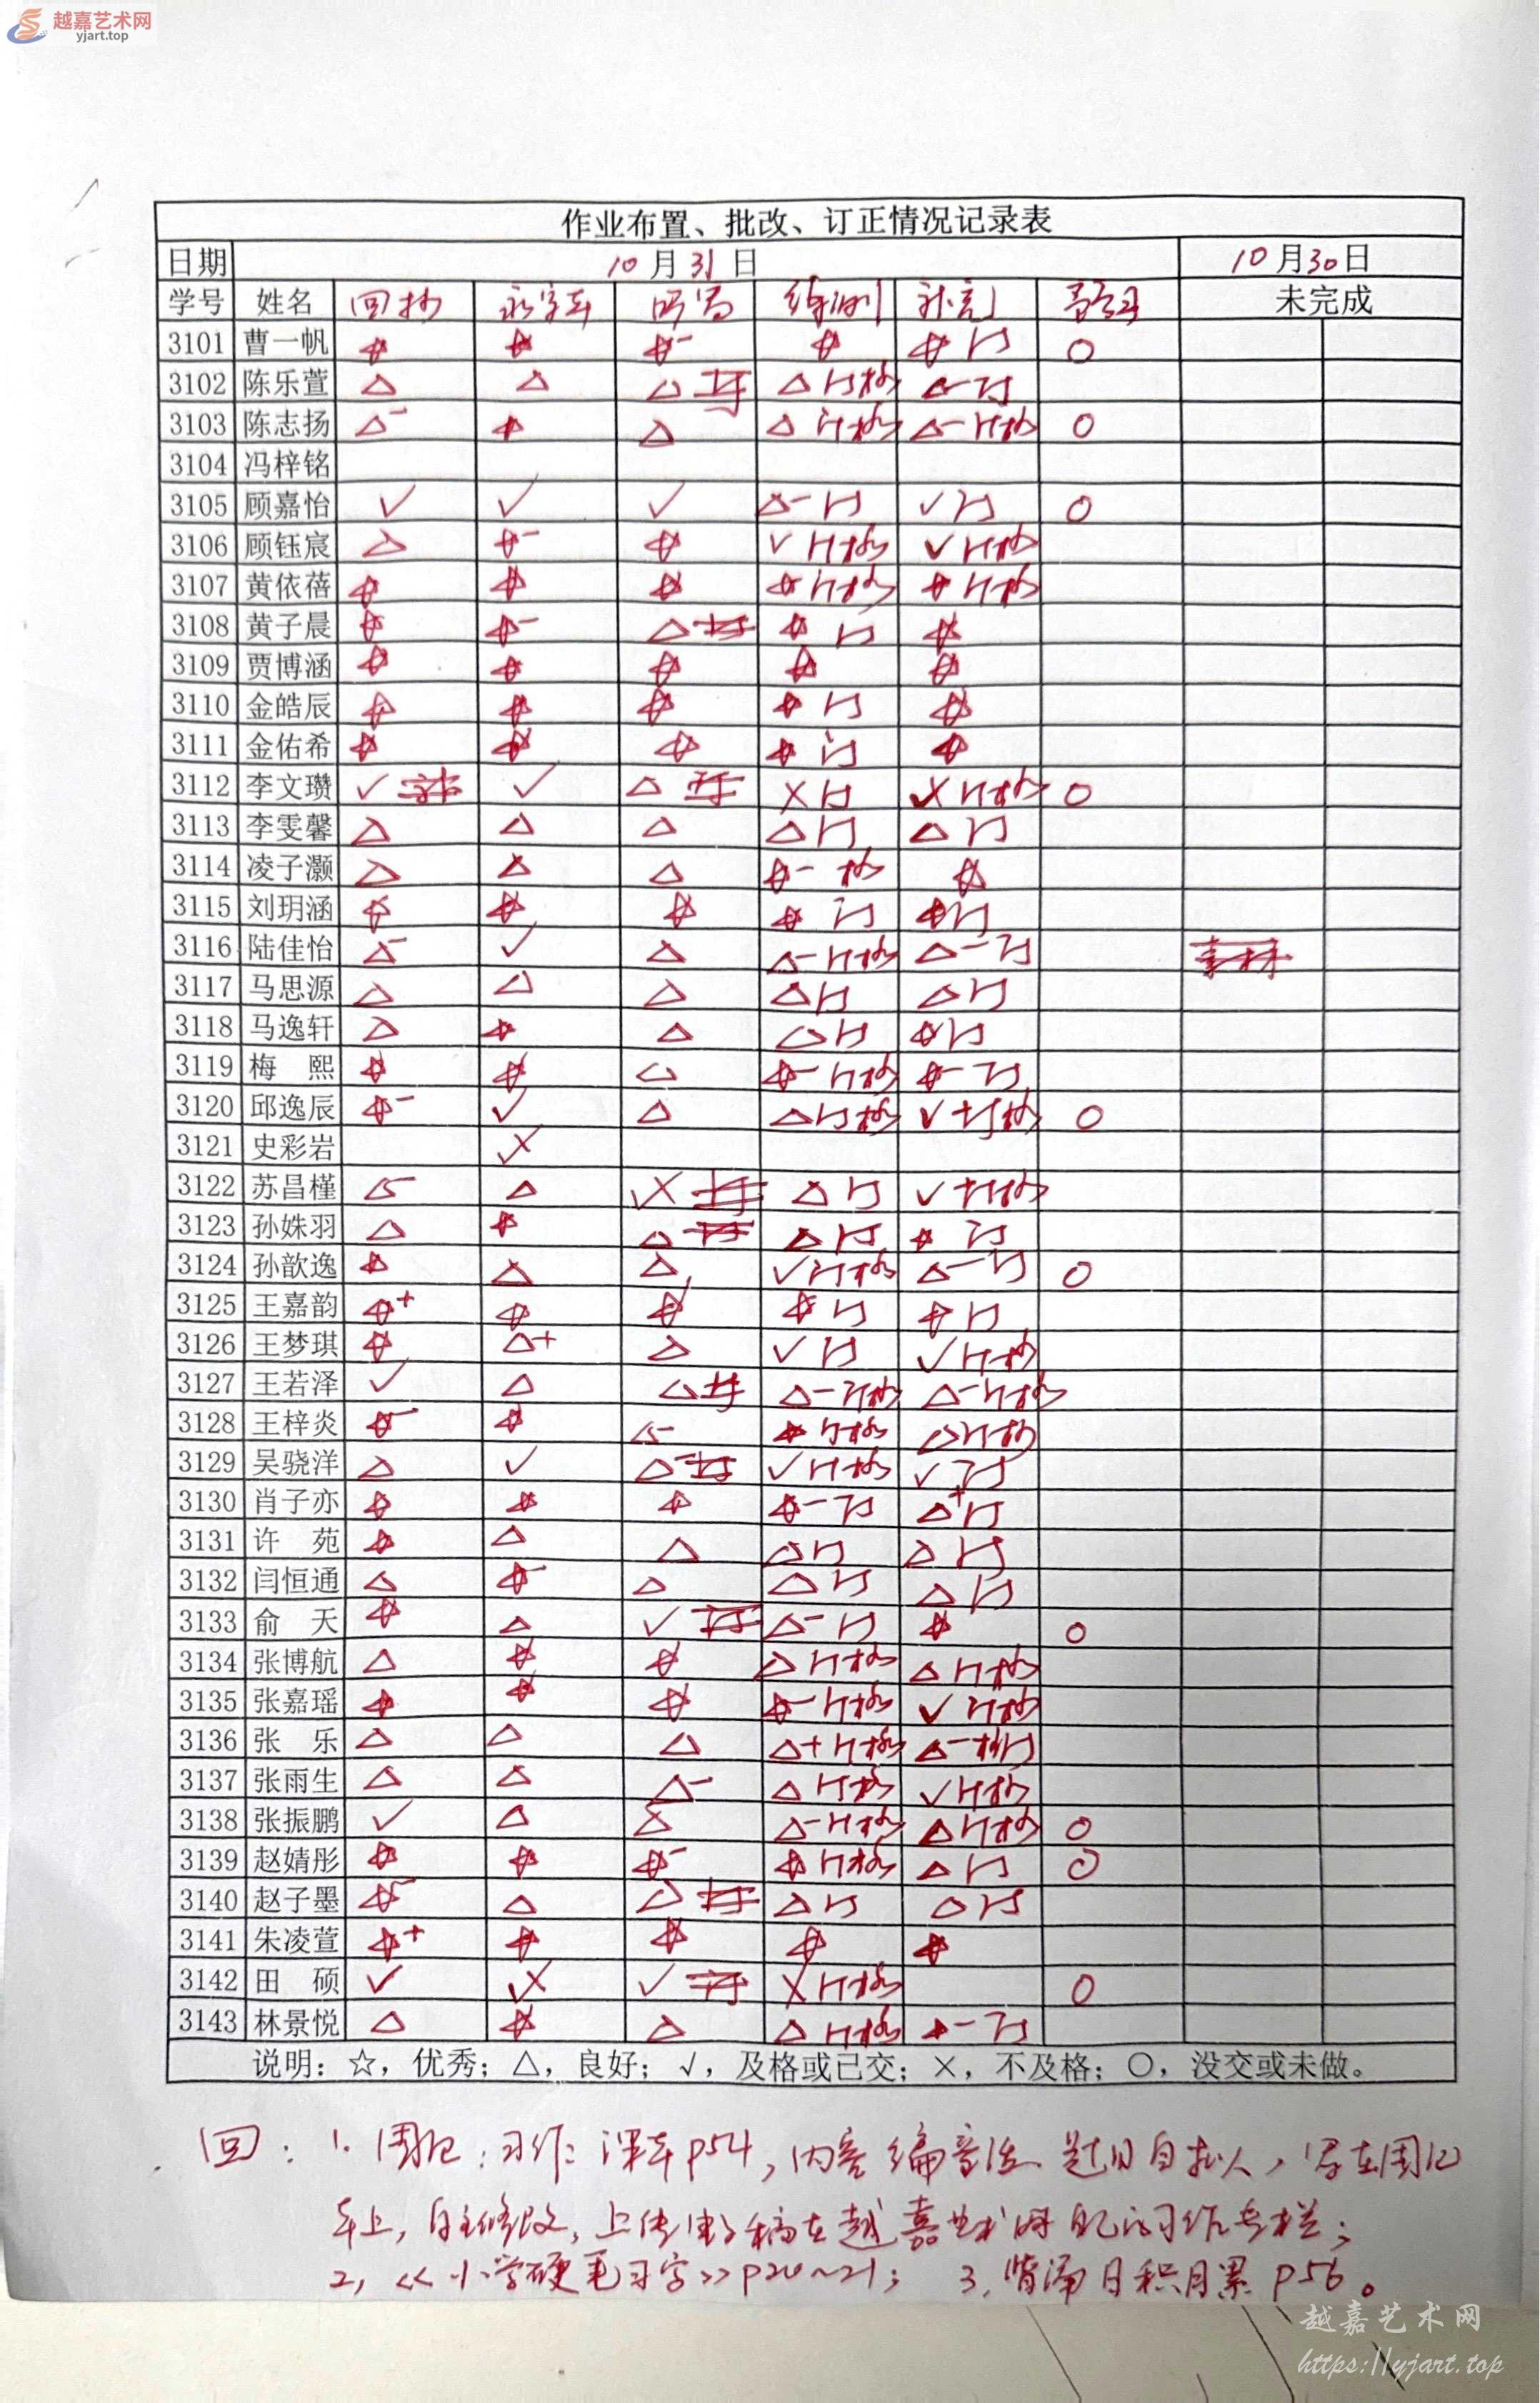 越嘉艺术网
yjart.top
作业布置、批改、订正情况记录表
日期 10月31日 10月30日
学号 姓名 回抄 听写 练测 未完成
3101 曹一帆 ☆ ☆ ☆- ☆ ☆ 订 ○
3102 陈乐萱 △ △ △ △ 订抄 △- 订
3103 陈志扬 △- ☆ △ △ 订抄 △- 订抄 ○
3104 冯梓铭
3105 顾嘉怡 √ √ √ △- 订 √ 订 ○
3106 顾钰宸 △ ☆- ☆ √ 订抄 √ 订抄
3107 黄依蓓 ☆ ☆ ☆ ☆ 订抄 ☆ 订抄
3108 黄子晨 ☆ ☆- △ ☆ 订 ☆
3109 贾博涵 ☆ ☆ ☆ ☆ ☆
3110 金皓辰 ☆ ☆ ☆ ☆ 订 ☆
3111 金佑希 ☆ ☆ ☆ ☆ 订 ☆
3112 李文瓒 √ √ △ × 订 × 订抄 ○
3113 李雯馨 △ △ △ △ 订 △ 订
3114 凌子灏 △ △ △ ☆- 抄 ☆
3115 刘玥涵 ☆ ☆ ☆ ☆ 订 ☆ 订
3116 陆佳怡 △- √ △ △- 订抄 △- 订
3117 马思源 △ △ △ △ 订 △ 订
3118 马逸轩 △ ☆ △ △ 订 ☆ 订
3119 梅 熙 ☆ ☆ △ ☆- 订抄 ☆- 订
3120 邱逸辰 ☆- √ △ △ 订抄 √+ 订抄 ○
3121 史彩岩 ×
3122 苏昌槿 △- △ × △ 订 √+ 订抄
3123 孙姝羽 △ ☆ △ △ 订 ☆ 订
3124 孙歆逸 ☆ △ △ √ 订抄 △- 订 ○
3125 王嘉韵 ☆+ ☆ ☆ ☆ 订 ☆ 订
3126 王梦琪 ☆ △+ △ √ 订 √ 订抄
3127 王若泽 √ △ △ △- 订抄 △- 订抄
3128 王梓炎 ☆- ☆ △- ☆ 订抄 △ 订抄
3129 吴骁洋 △ √ △ √ 订抄 √ 订
3130 肖子亦 ☆ ☆ ☆ ☆- 订 △+ 订
3131 许 苑 ☆ △ △ △ 订 △ 订
3132 闫恒通 △ ☆- △ △ 订 △ 订
3133 俞 天 ☆ △ √ △- 订 ☆ ○
3134 张博航 △ ☆ ☆ △ 订抄 △ 订抄
3135 张嘉瑶 ☆ ☆ ☆ ☆- 订抄 √ 订抄
3136 张 乐 △ △ △ △+ 订抄 △- 抄订
3137 张雨生 △ △ △- △ 订抄 √ 订抄
3138 张振鹏 √ △ △- 订抄 △ 订抄 ○
3139 赵婧彤 ☆ ☆ ☆- ☆ 订抄 △ 订 ○
3140 赵子墨 ☆- △ △ △ 订 △ 订
3141 朱凌萱 ☆+ ☆ ☆ ☆ ☆
3142 田 硕 √ × √ × 订抄 ○
3143 林景悦 △ ☆ △ △ 订抄 ☆- 订
说明：☆，优秀；△，良好；√，及格或已交；×，不及格；○，没交或未做。
回：1. 周记：习作：课本P54，内容编童话．题目自拟，写在周记
本上，自主修改，上传电子稿在越嘉艺术网自己的习作专栏；
2，《小学硬笔习字》P20~21； 3，背诵日积月累P56。
越嘉艺术网
https://yjart.top